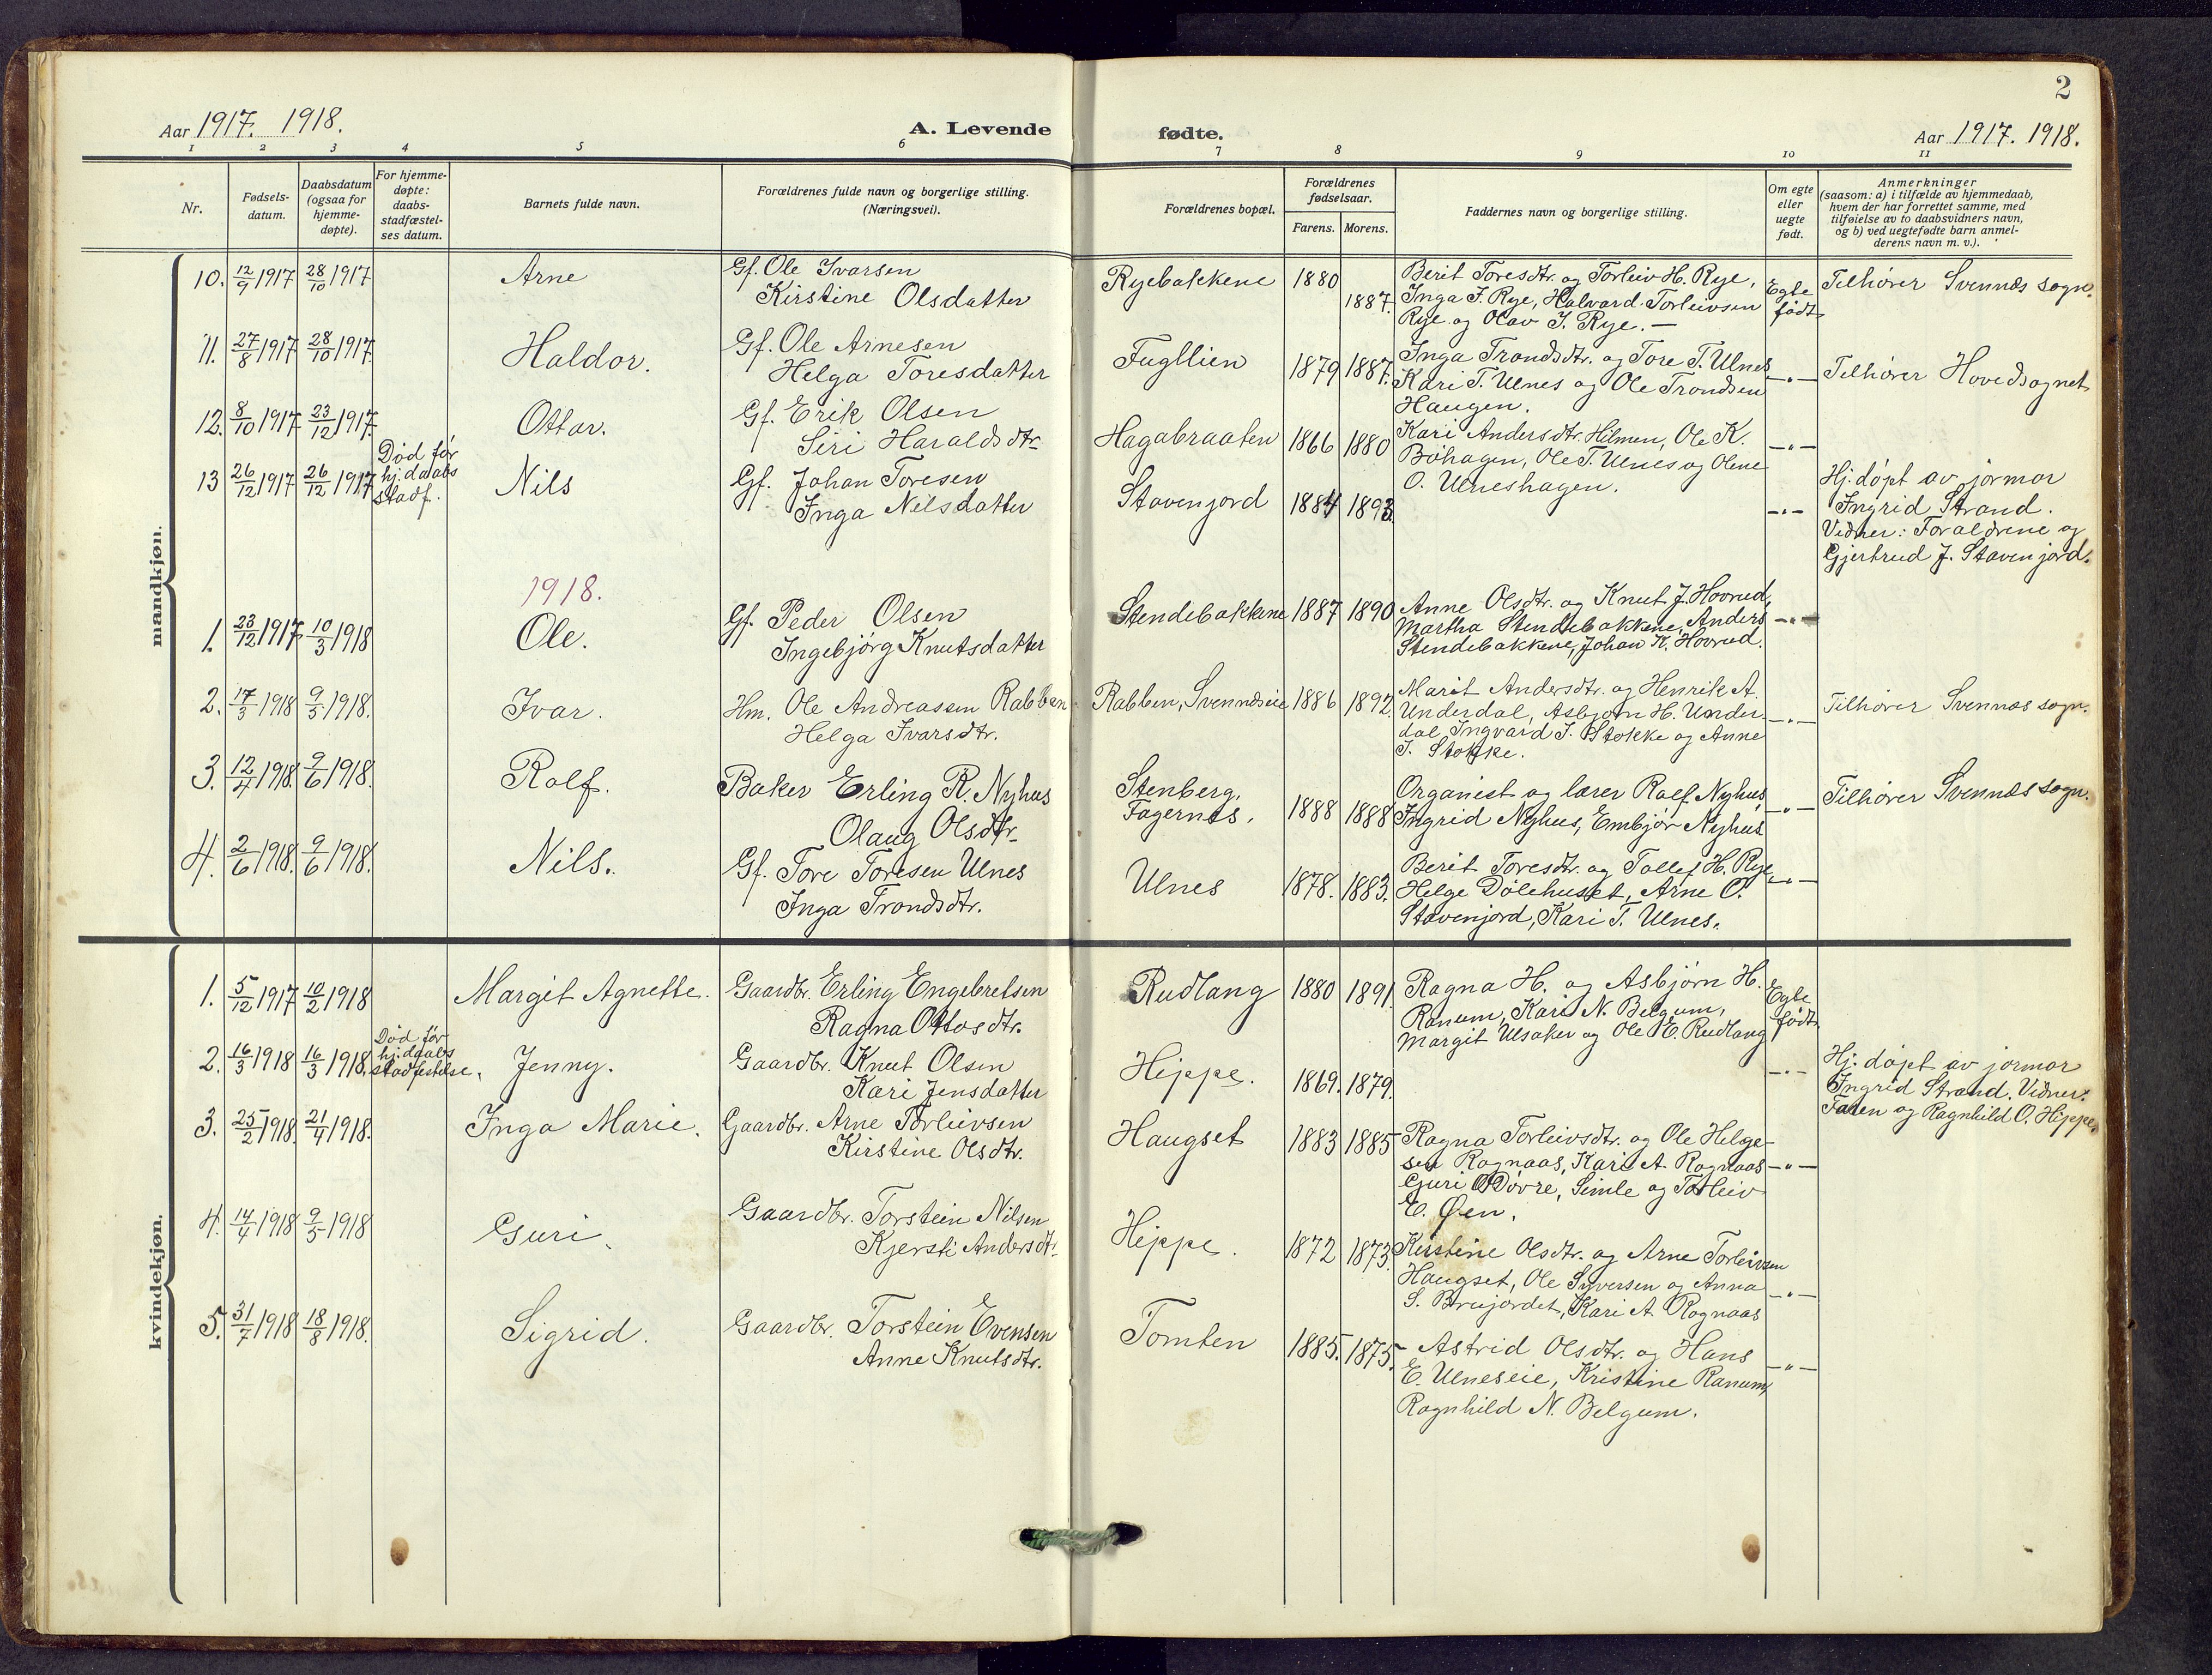 2
Aar 1917. 1918.
A. Levende
fødte.
Aar 1917. 1918.
1 2 3 4 5 6 7 8 9 10 11
Nr.
Fødsels-
datum.
Daabsdatum
(ogsaa for
hjemme-
døpte).
For hjemme-
døpte:
daabs-
stadfæstel-
ses datum.
Barnets fulde navn.
Forældrenes fulde navn og borgerlige stilling.
(Næringsvei).
Forældrenes bopæl.
Forældrenes
fødselsaar.
Farens. Morens.
Faddernes navn og borgerlige stilling.
Om egte
eller
uegte
født.
Anmerkninger
(saasom: a) i tilfælde av hjemmedaab,
hvem der har forrettet samme, med
tilføielse av to daabsvidners navn,
og b) ved uegtefødte barn anmel-
derens navn m. v.).
mandkjøn.
10. 12/9 1917 28/10 1917 Arne
Gf. Ole Ivarsen
Kirstine Olsdatter
Ryebakkene 1880 1887.
Berit Toresdtr. og Torleiv H. Rye,
Inga J. Rye, Halvard Torleivsen
Rye og Olav J. Rye. —
Egte
født
Tilhører Svennæs sogn.
11. 27/8 1917 28/10 1917. Haldor.
Gf. Ole Arnesen
Helga Toresdatter
Fugllien 1879 1887.
Inga Trondsdtr. og Tore T. Ulnes
Kari T. Ulnes og Ole Trondsen
Haugen.
—"—
Tilhører Hovedsognet
12. 8/10 1917 23/12 1917. Ottar.
Gf. Erik Olsen
Siri Haraldsdtr
Hagabraaten 1866 1880
Kari Andersdtr. Hilmen, Ole K.
Bøhagen, Ole T. Ulnes og Olene
O. Ulneshagen.
—"—
13 26/12 1917 26/12 1917
Død før
hj. daabs
stadf.
Nils
Gf. Johan Toresen
Inga Nilsdatter
Stavenjord 1884 1893.
—"—
Hj. døpt av jormor
Ingrid Strand.
Vidner: Forældrene og
Gjertrud J. Stavenjord.
1918.
1. 23/12 1917 10/3 1918 Ole.
Gf. Peder Olsen
Ingebjørg Knutsdatter
Stendebakkene 1887 1890
Anne Olsdtr. og Knut J. Hovrud,
Martha Stendebakkene, Anders
Stendebakkene, Johan K. Hovrud.
—"—
2. 17/3 1918 9/5 1918. Ivar.
Hm. Ole Andreassen Rabben
Helga Ivarsdtr.
Rabben, Svennæseie 1886 1892.
Marit Andersdtr. og Henrik A.
Underdal, Asbjørn H. Under-
dal, Ingvard J. Stokke og Anne
J. Stokke.
—"—
Tilhører Svennæs sogn.
3. 12/4 1918. 9/6 1918. Rolf.
Baker Erling R. Nyhus
Olaug Olsdtr
Stenberg,
Fagernæs. 1888 1888
Organist og lærer Rolf Nyhus
Ingrid Nyhus, Embjør Nyhus
—"—
Tilhører Svennæs sogn.
4. 2/6 1918. 9/6 1918. Nils.
Gf. Tore Toresen Ulnes
Inga Trondsdtr.
Ulnes 1878. 1883.
Berit Toresdtr. og Tollef H. Rye,
Helge Dølehuset, Arne O.
Stavenjord, Kari T. Ulnes.
—"—
kvindekjøn.
1. 5/12 1917 10/2 1918 Margit Agnette.
Gaardbr. Erling Engebretsen
Ragna Ottosdtr.
Rudlang 1880 1891
Ragna H. og Asbjørn H.
Ranum, Kari N. Belgum,
Margit Ulsaker og Ole E. Rudlang
Egte
født
2. 16/3 1918 16/3 1918.
Død før
hj. daabs
stadfestelse.
Jenny.
Gaardbr. Knut Olsen
Kari Jensdatter
Hippe. 1869. 1879.
—"—
Hj. døpt av jormor
Ingrid Strand. Vidner:
Faren og Ragnhild O. Hippe.
3. 25/2 1918. 21/4 1918. Inga Marie.
Gaardbr. Arne Torleivsen
Kirstine Olsdtr.
Haugset 1883 1885
Ragna Torleivsdtr. og Ole Helge-
sen Rognaas, Kari A. Rognaas
Guri O Døvre, Simle og Torleiv
E. Øen.
—"—
4. 14/4 1918 9/5 1918 Guri.
Gaardbr. Torstein Nilsen
Kjersti Andersdtr
Hippe. 1872 1873.
Kirstine Olsdtr. og Arne Torleivsen
Haugset, Ole Syversen og Anna
S. Brujordet, Kari A. Rognaas
—"—
5. 31/7 1918 18/8 1918. Sigrid.
Gaardbr. Torstein Evensen
Anne Knutsdtr.
Tomten 1885. 1875.
Astrid Olsdtr. og Hans
E. Ulneseie, Kristine Ranum,
Ragnhild N. Belgum.
—"—